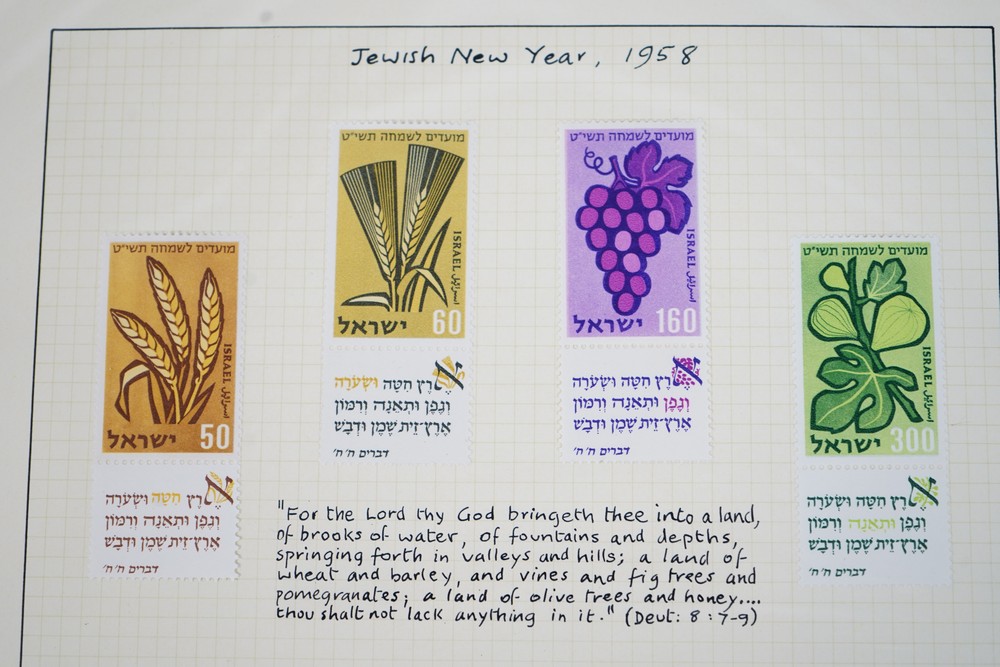 Jewish New Year, 1958
מועדים לשמחה תשי"ט
ISRAEL
اسرائيل
ישראל 50
ארץ חִטָּה וּשְׂעֹרָה
וְגֶפֶן וּתְאֵנָה וְרִמּוֹן
אֶרֶץ־זֵית שֶׁמֶן וּדְבָשׁ
דברים ח' ח'
מועדים לשמחה תשי"ט
ISRAEL
اسرائيل
ישראל 60
ארץ חִטָּה וּשְׂעֹרָה
וְגֶפֶן וּתְאֵנָה וְרִמּוֹן
אֶרֶץ־זֵית שֶׁמֶן וּדְבָשׁ
דברים ח' ח'
מועדים לשמחה תשי"ט
ISRAEL
اسرائيل
ישראל 160
ארץ חִטָּה וּשְׂעֹרָה
וְגֶפֶן וּתְאֵנָה וְרִמּוֹן
אֶרֶץ־זֵית שֶׁמֶן וּדְבָשׁ
דברים ח' ח'
מועדים לשמחה תשי"ט
ISRAEL
اسرائيل
ישראל 300
ארץ חִטָּה וּשְׂעֹרָה
וְגֶפֶן וּתְאֵנָה וְרִמּוֹן
אֶרֶץ־זֵית שֶׁמֶן וּדְבָשׁ
דברים ח' ח'
"For the Lord thy God bringeth thee into a land,
of brooks of water, of fountains and depths,
springing forth in valleys and hills; a land of
wheat and barley, and vines and fig trees and
pomegranates; a land of olive trees and honey....
thou shalt not lack anything in it." (Deut: 8 : 7-9)